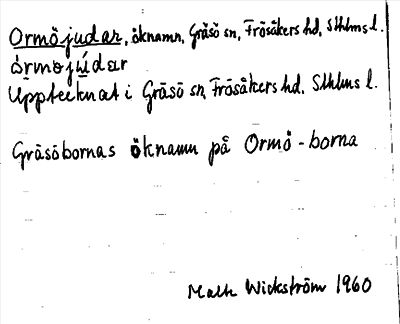 Ormöjudar, öknamn, Gräsö sn, Frösåkers hd, Sthlms l.
òrmøjúdar
Upptecknat i Gräsö sn, Frösåkers hd, Sthlms l.
Gräsöbornas öknamn på Ormö-borna
Wickström 1960